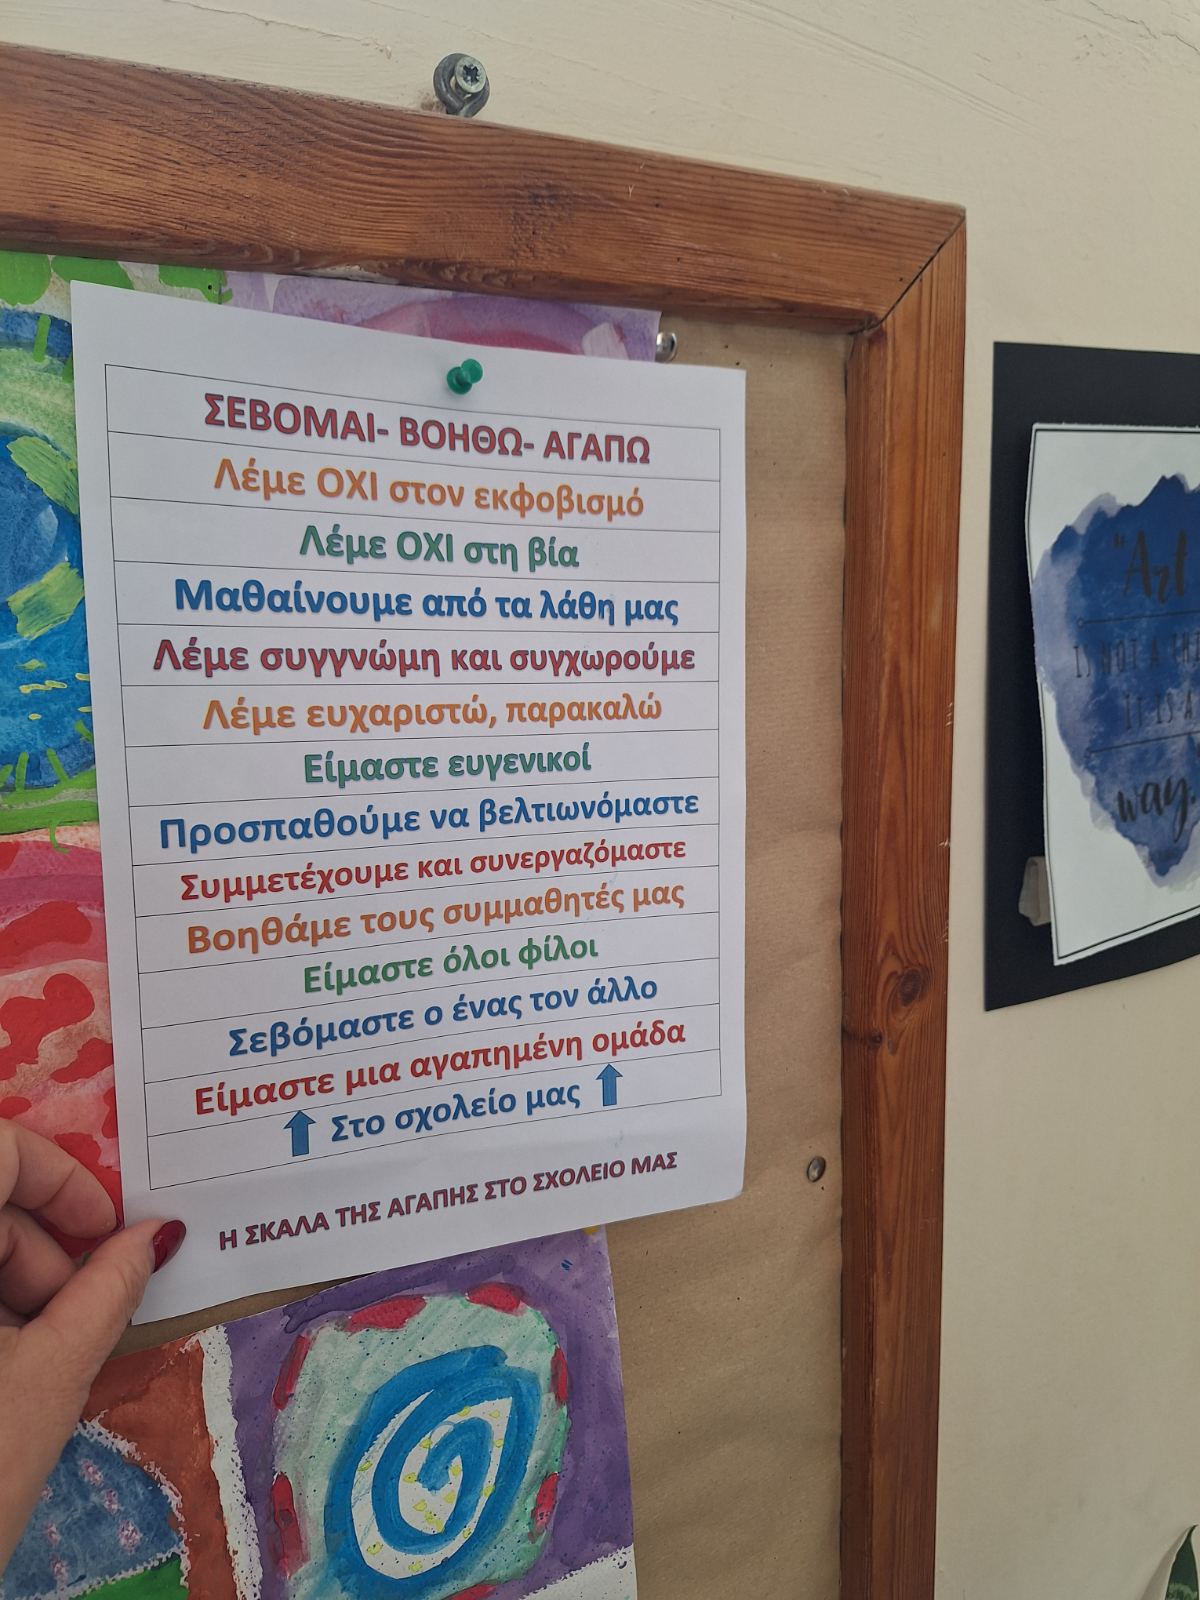 ΣΕΒΟΜΑΙ- ΒΟΗΘΩ- ΑΓΑΠΩ
Λέμε ΟΧΙ στον εκφοβισμό
Λέμε ΟΧΙ στη βία
Μαθαίνουμε από τα λάθη μας
Λέμε συγγνώμη και συγχωρούμε
Λέμε ευχαριστώ, παρακαλώ
Είμαστε ευγενικοί
Προσπαθούμε να βελτιωνόμαστε
Συμμετέχουμε και συνεργαζόμαστε
Βοηθάμε τους συμμαθητές μας
Είμαστε όλοι φίλοι
Σεβόμαστε ο ένας τον άλλο
Είμαστε μια αγαπημένη ομάδα
Στο σχολείο μας
Η ΣΚΑΛΑ ΤΗΣ ΑΓΑΠΗΣ ΣΤΟ ΣΧΟΛΕΙΟ ΜΑΣ
"Art
IS NOT A
IT IS A
way.